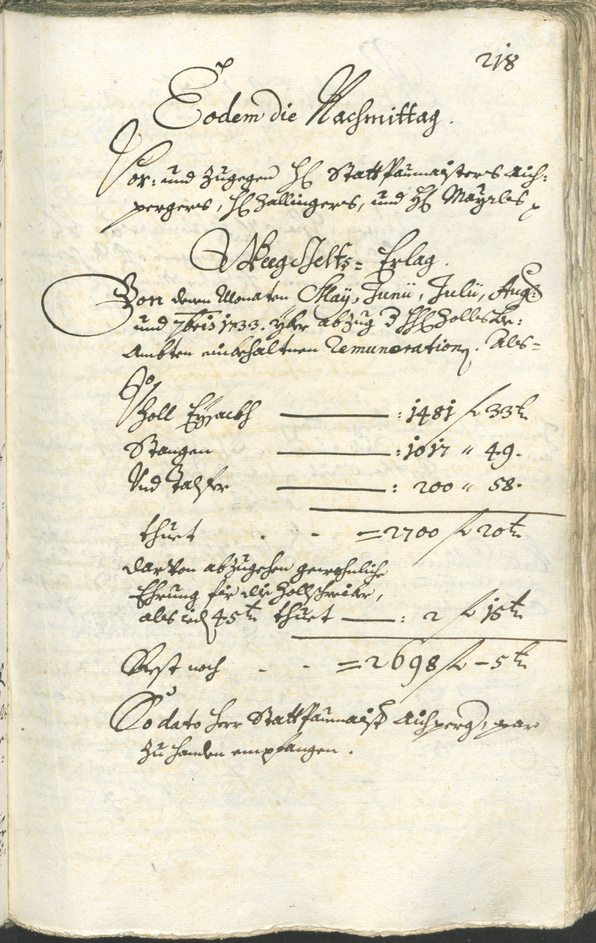 218
Eodem die Nachmittag.
Vor: und Zugegen H: Statt Paumaisters Aich:
pergers, H: Zallingers, und H: Mayrles
Weeg Gelts= Erlag.
Von denen Monaten Maÿ, Junii, Julii, Aug:
und 7bris 1733. yber abzug d HH: Zolls Be:
Ambten einbehaltnen Remuneration. Als=
Zoll Eysackh — : 1481 f 33 k
Stangen — : 1017 " 49.
Und Talfer — : 200 " 58.
thuet . . = 2700 f 20 k
darvon abzuzehen gewohnliche
Ehrung für die Zollschreiber,
als 45 k thuet — : 2 f 15 k
Rest noch . . = 2698 f – 5 k
So dato Herr Statt Paumaist: Aichperg: par
zu handen empfangen.